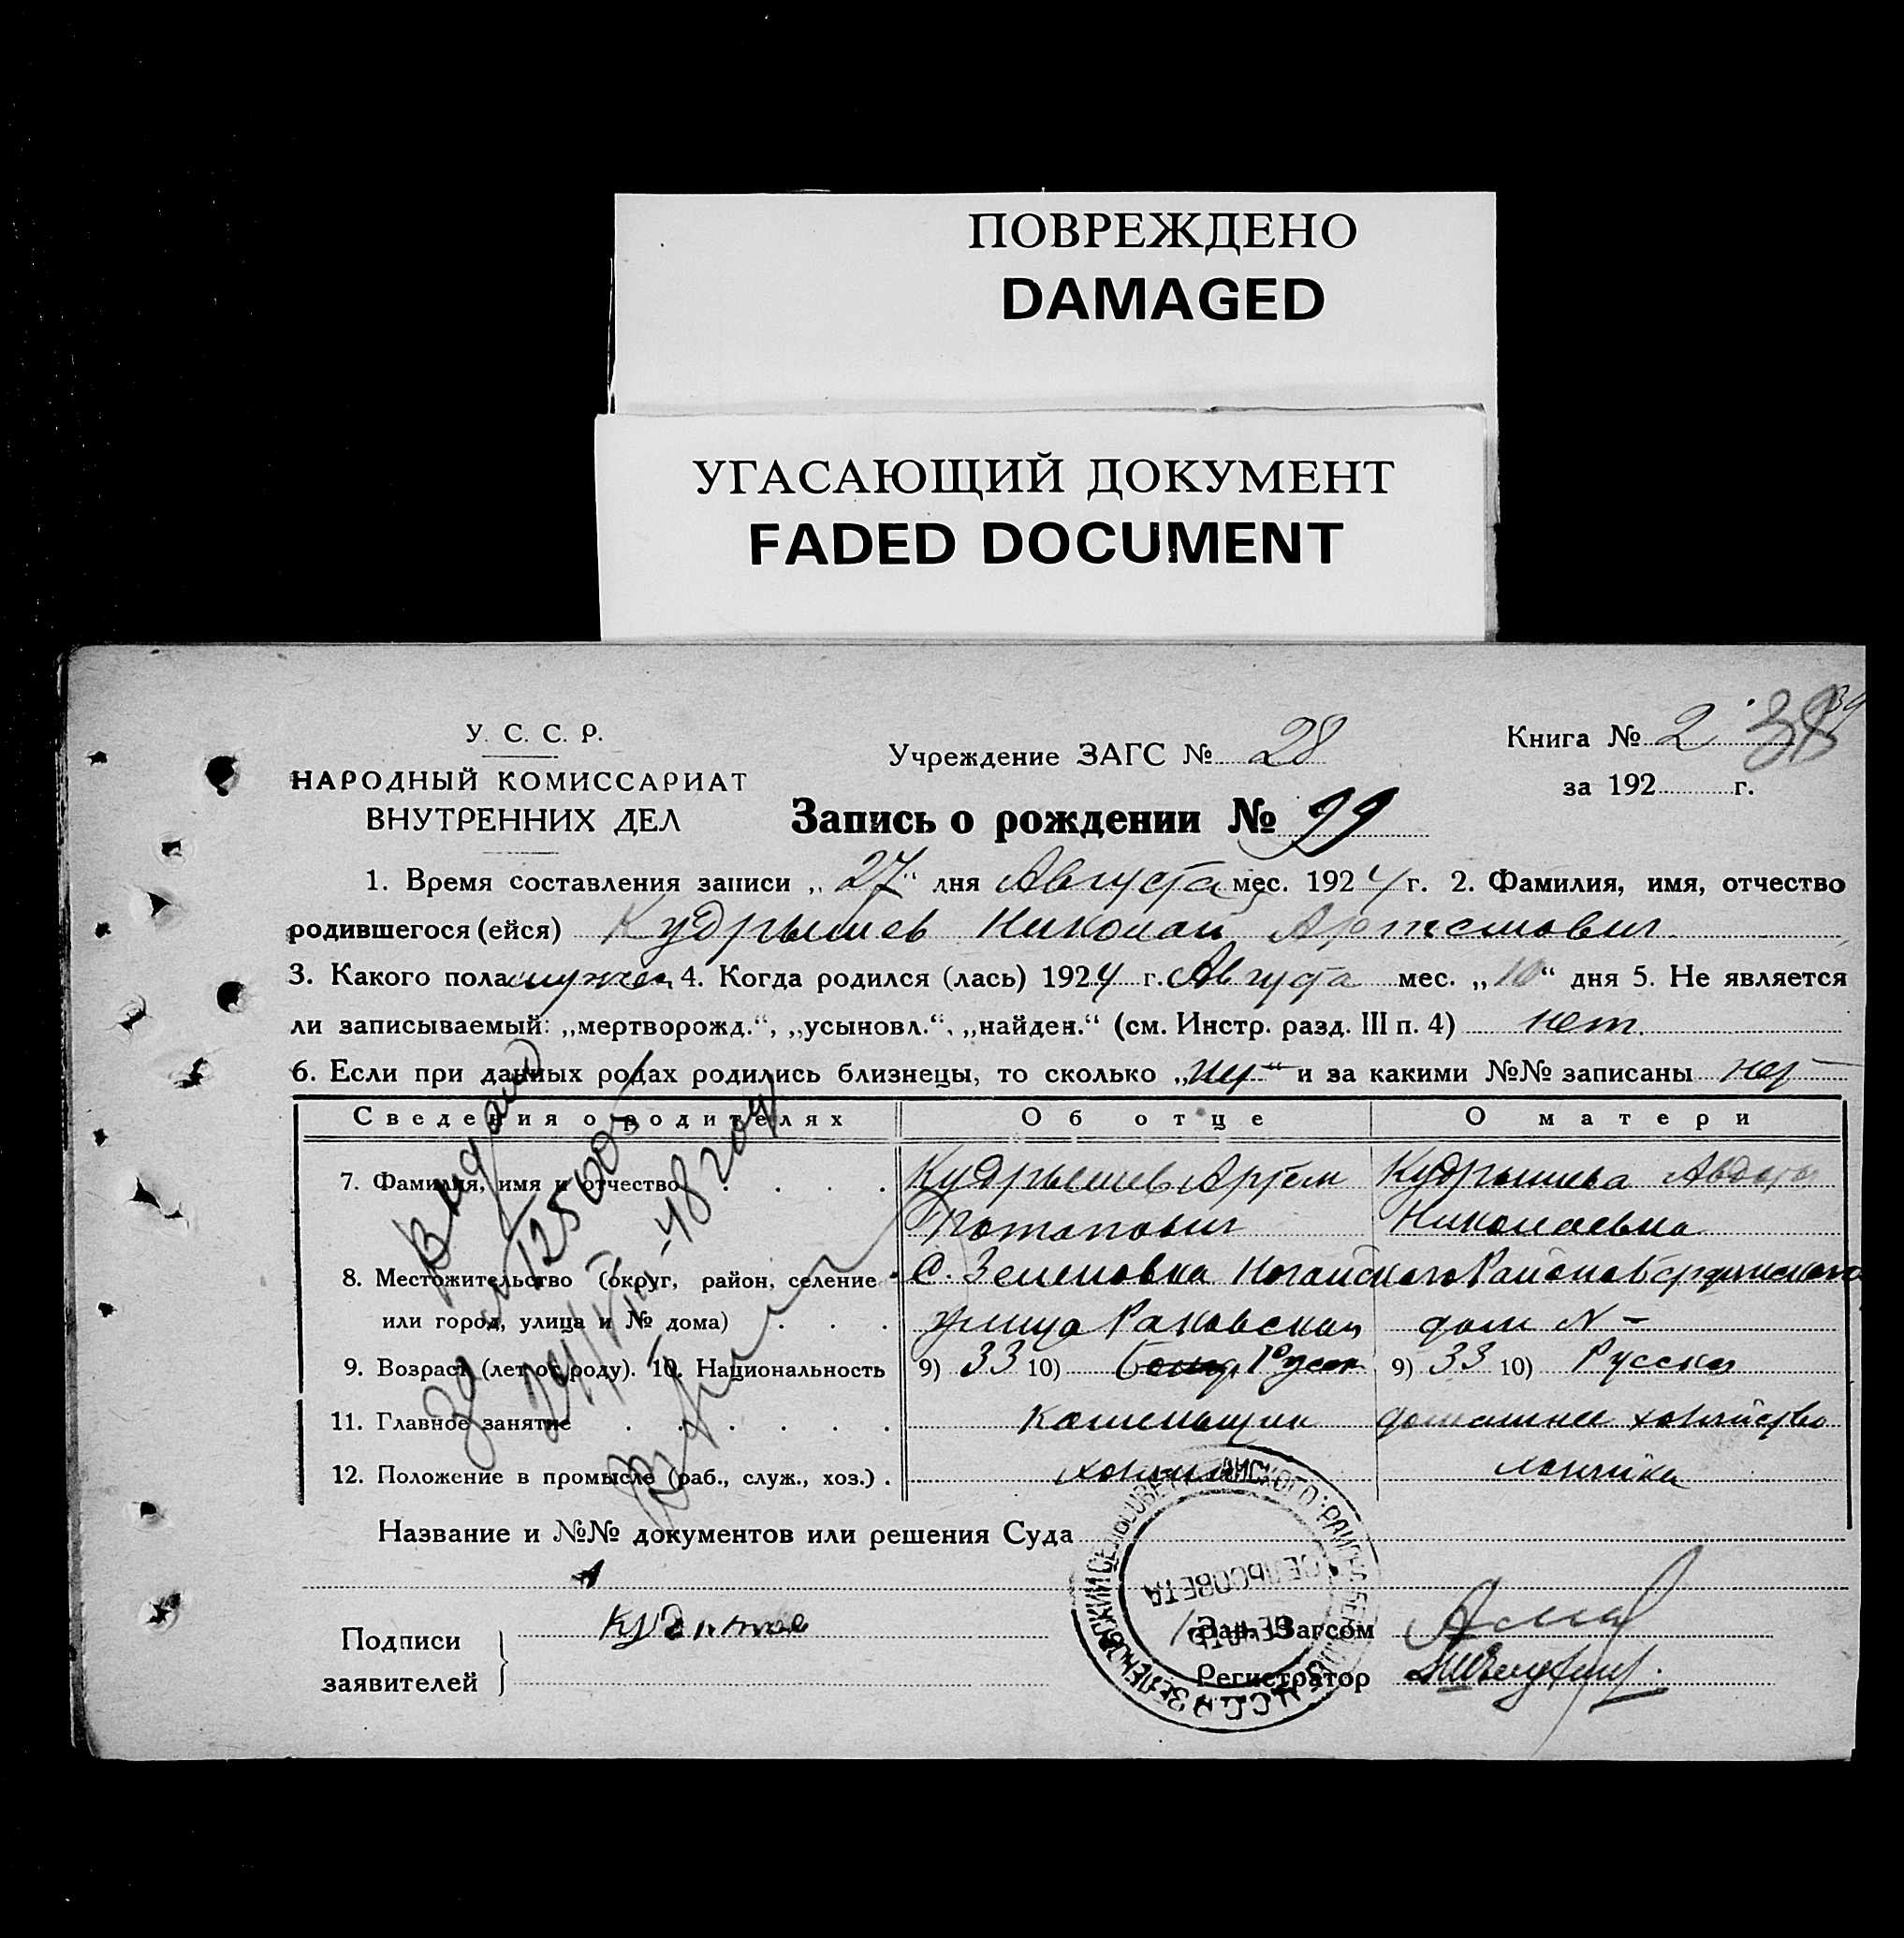 ПОВРЕЖДЕНО
DAMAGED
УГАСАЮЩИЙ ДОКУМЕНТ
FADED DOCUMENT
У. С. С. Р.
НАРОДНЫЙ КОМИССАРИАТ
ВНУТРЕННИХ ДЕЛ
Учреждение ЗАГС № 28
Книга № 2 38 39
за 192 г.
Запись о рождении № 99
1. Время составления записи „27“ дня Августа мес. 1924 г. 2. Фамилия, имя, отчество
родившегося (ейся) Кудрышев Николай Артемович
3. Какого пола мужск 4. Когда родился (лась) 1924 г. Августа мес. „10“ дня 5. Не является
ли записываемый: „мертворожд.“, „усыновл.“, „найден.“ (см. Инстр. разд. III п. 4) нет.
6. Если при данных родах родились близнецы, то сколько „нет“ и за какими №№ записаны нет
Сведения о родителях Об отце О матери
7. Фамилия, имя и отчество Кудрышев Артем Кудрышева
Потапович Николаевна
8. Местожительство (округ, район, селение С. Зеленовка Ногайского Района Бердянского
или город, улица и № дома) улица Раковская дом N –
9. Возраст (лет от роду). 10. Национальность 9) 33 10) Русск 9) 33 10) Русская
11. Главное занятие домашнее хозяйство
12. Положение в промысле (раб., служ., хоз.) хозяин
Название и №№ документов или решения Суда
Подписи
заявителей
Зав. Загсом
Регистратор
Выдано
48 году
СЕЛЬСОВЕТА